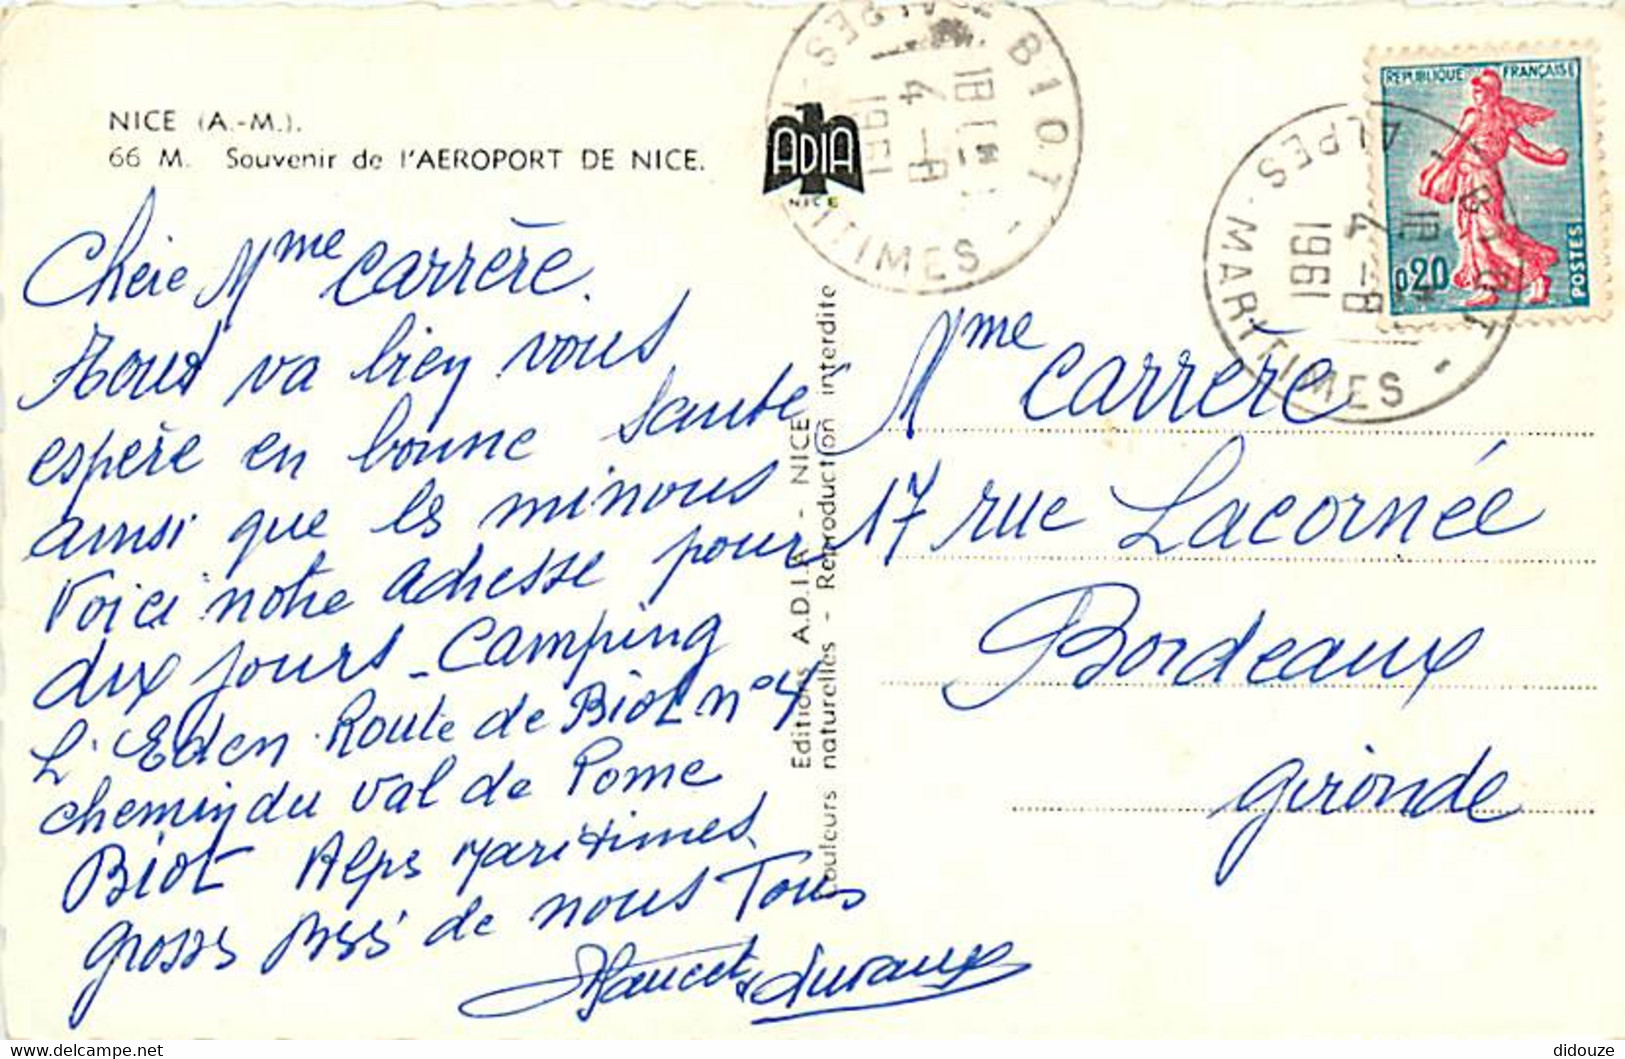 NICE (A.-M.).
66 M. Souvenir de l'AEROPORT DE NICE.
ADIA
NICE
BIOT
ALPES-MARITIMES
18H
4-8
1961
REPUBLIQUE FRANÇAISE
0,20
POSTES
BIOT
ALPES-MARITIMES
18H
4-8
1961
Chère Mme Carrère.
Tout va bien vous
espère en bonne santé
ainsi que les minous
Voici notre adresse pour
dix jours - Camping
L'Eden Route de Biot n°4
chemin du Val de Pome
Biot Alpes Maritimes
grosses de nous Tous
Editions A.D.I.A. - NICE
Couleurs naturelles - Reproduction interdite
Mme Carrère
17 rue Lacornée
Bordeaux
Gironde
didouze
delcampe.net